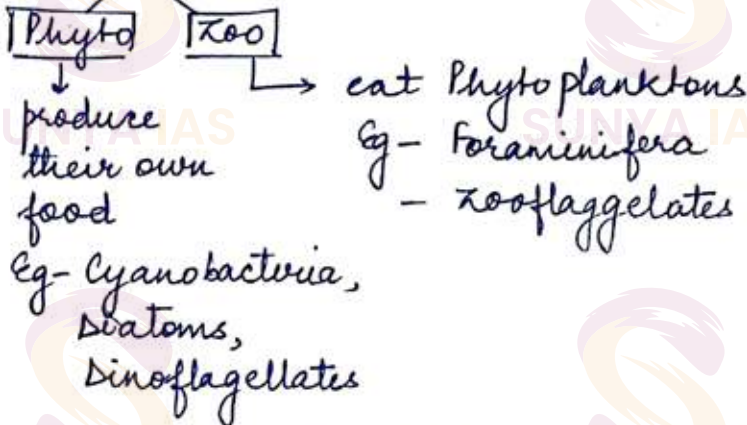 Phyto
Zoo
produce
their own
food
Eg- Cyanobacteria,
Diatoms,
Dinoflagellates
eat Phytoplanktons
Eg- Foraminifera
- Zooflaggelates
SUNYA IAS
SUNYA IA
SUNYA IAS
SUNYA IAS